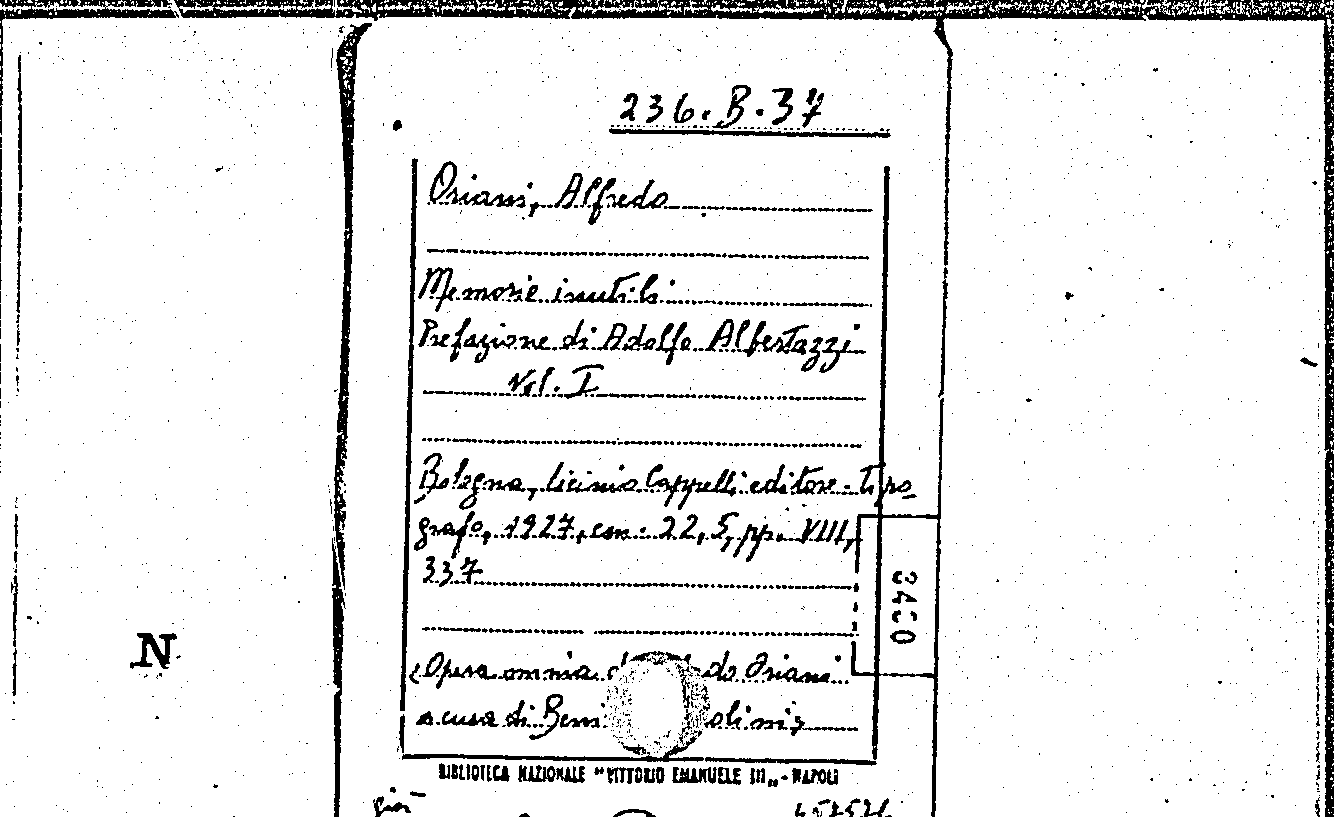 236.B.37
Oriani, Alfredo
Memorie inutili
Prefazione di Adolfo Albertazzi
Vol. I
Bologna, licinio Cappelli editore-tipo
grafo, 1927, cm. 22,5, pp. VIII,
337
3400
N
(Opera omnia d do Oriani
a cura di Beni olini)
BIBLIOTECA NAZIONALE "VITTORIO EMANUELE III„ - NAPOLI
già